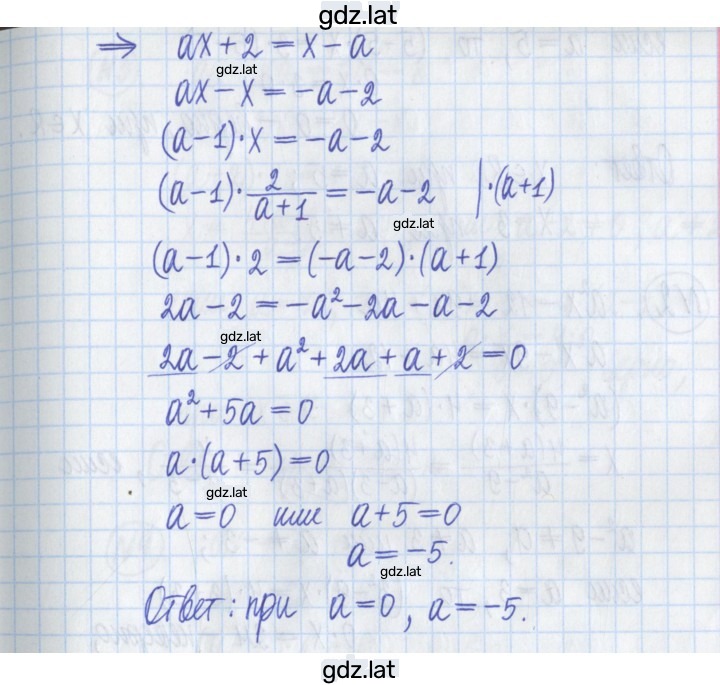 gdz.lat
⇒ ax + 2 = x − a
gdz.lat
ax − x = −a − 2
(a − 1)·x = −a − 2
(a − 1)· 2/(a + 1) = −a − 2 |·(a + 1)
gdz.lat
(a − 1)·2 = (−a − 2)·(a + 1)
2a − 2 = −a² − 2a − a − 2
gdz.lat
2a − 2 + a² + 2a + a + 2 = 0
a² + 5a = 0
a·(a + 5) = 0
gdz.lat
a = 0 или a + 5 = 0
a = −5.
gdz.lat
Ответ: при a = 0, a = −5.
gdz.lat